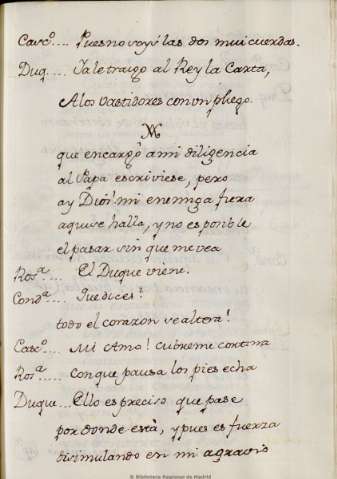 Cascº.... Pues no voy é las dos mui cuerdas.
Duq.... Ya le traigo al Rey la Carta,
A los bastidores con un pliego.
que encargó a mi diligencia
al Papa escriviese, pero
ay Dios! mi enemiga fiera
aqui se halla, y no es posible
el pasar sin que me vea
Rosª.... El Duque viene.
Condª.... Que dices?
todo el corazon se altera!
Cascº.... Mi Amo! cubreme cortina
Rosª.... Con que pausa los pies echa
Duque... Ello es preciso que pase
por donde está, y pues es fuerza
disimulando en mi agravio
© Biblioteca Regional de Madrid